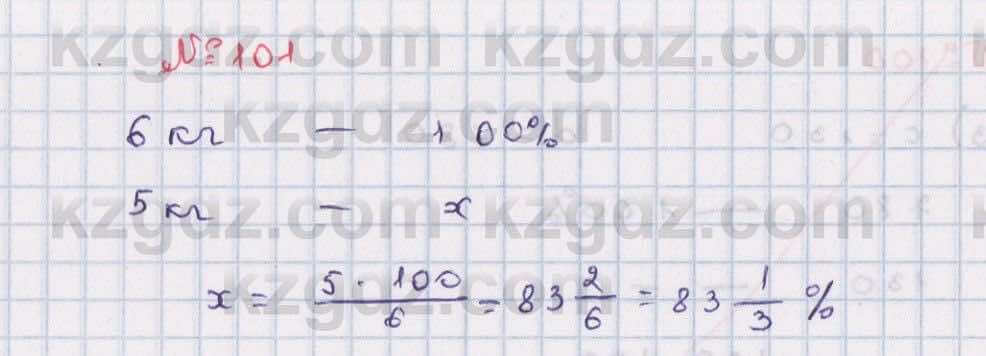 № 101
6 кг — 100%
5 кг — x
x = 5 · 100 / 6 = 83 2/6 = 83 1/3 %
kzgdz.com kzgdz.com
kzgdz.com
kzgdz.com kzgdz.com
kzgdz.com